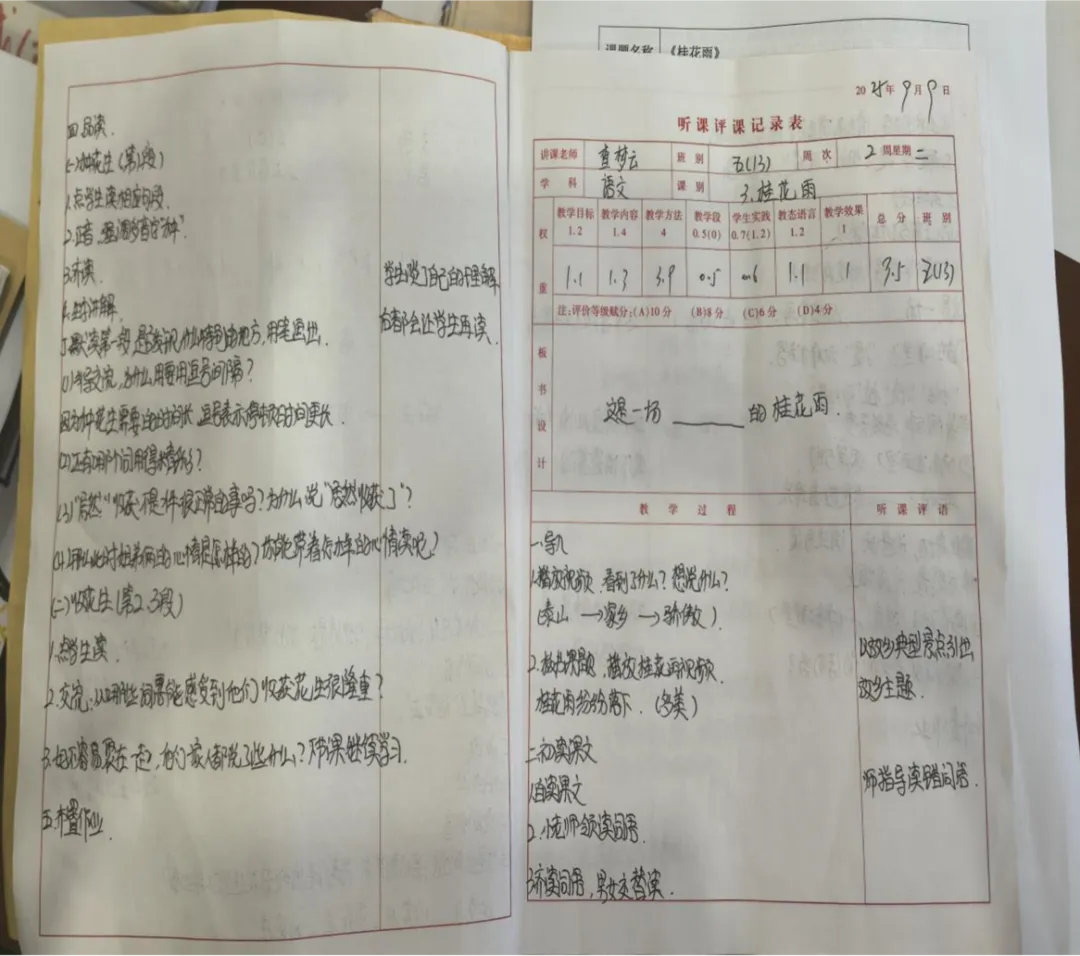 四.品读.
(一)种花生(第1段)
1.点学生读相应句段.
2.正音,强调多音字"种".
3.齐读.
4.生讲解.
1.默读第一段,
(1)指导交流,为什么用要用逗号间隔?
因为种花生需要的时间长,逗号表示停顿的时间更长.
(2)还有哪个词用得精妙?
(3)"居然"收获不是件很正常的事吗?为什么说"居然收获了"?
(4)那么此时姐弟俩的心情是怎样的?你能带着
心情读呢?
(二)收花生(第2.3段)
1.点学生读.
2.交流:从哪些词票能感受到他们收获花生很隆重?
3.好不容易聚在一起,他们一家人都说了些什么?下节课继续学习.
五.布置作业.
学生说了自己的理解
后都会让学生再读.
课题名称 《桂花雨》
2025年9月9日
听课评课记录表
讲课老师 查梦云 班别 五(13) 周次 2 周星期 二
学科 语文 课别 3.桂花雨
权重
教学目标 教学内容 教学方法 教学段 学生实践 教态语言 教学效果 总分 班别
1.2 1.4 4 0.5(0) 0.7(1.2) 1.2 1
1.1 1.3 3.9 0.5 0.6 1.1 1 3.5 五(13)
注:评价等级赋分:(A)10分 (B)8分 (C)6分 (D)4分
板书设计
这是一场______的桂花雨.
教学过程 听课评语
一.导入
1.播放视频,看到了什么?想说什么?
(泰山→家乡→骄傲)
2.板书课题,播放桂花雨视频
桂花雨纷纷落下.(多美)
二.初读课文
1.自读课文
2.小老师领读词语.
3.齐读词语,男女交替读.
以故乡典型景点引出
故乡主题.
师指导读错词语.